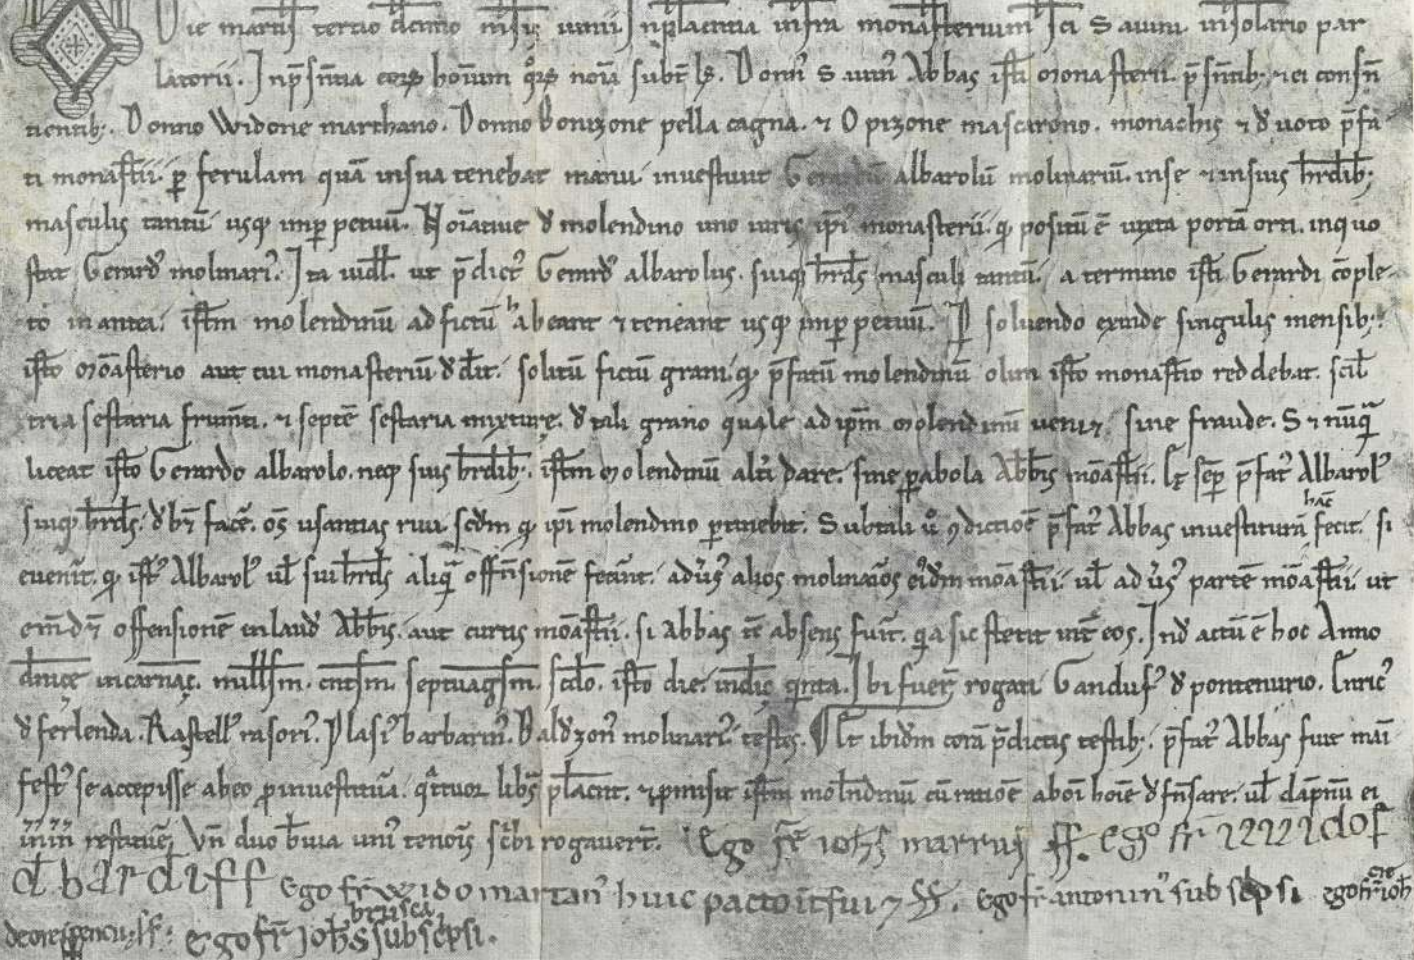 Die martis tercio decimo m̄sis iunii In placentia infra monasterium sc̄i Sauini in solario par
latorii. In p̄sn̄tia eorꝝ hominum qͦrꝝ noīa subt̄ lr̄. Donn̄ Sauin̄ Abbas isti monasterii p̄sn̄tib; ⁊ ei consn̄
tientib;. Donno Widone marthano. Donno bonizone pella cagna. ⁊ Opizone mascarono. monachis ⁊ d̄uoto p̄fa
ti monast̄ii. ꝑ ferulam quā in sua tenebat manu inuestiuit Gerardū albarolū molinariū. in se ⁊ in suis hr̄dib;
masculis tantū usqꝫ imꝑpetuū. Noīatiue d̄ molendino uno iuris ip̄i monasterii. qđ positū ē iuxta portā orti. in quo
stat Gerardꝰ molinariꝰ. Ita uidl̄. ut p̄dictꝰ Gerardꝰ albarolus. suiqꝫ hr̄ds masculi tantū. a termino isti Gerardi cōple
to in antea. istm̄ molendinū ad fictū habeant ⁊ teneant usqꝫ imꝑpetuū. ꝑsoluendo exinde singulis mensib;
isto mōasterio aut cui monasteriū d̄dit. solitū fictū grani qđ p̄fatū molendinū olim isto monast̄io reddebat. scil̄
tria sestaria frum̄ti. ⁊ septē sestaria mixture. d̄ tali grano quale ad ip̄m molendinū ueniet sine fraude. S⁊ nūqͣ
liceat isto Gerardo albarolo. neqꝫ suis hr̄dib;. istm̄ molendinū alt̄i dare. sine ꝑabola Abb̄is mōast̄ii. sēꝑ p̄fatꝰ Albarolꝰ
suiqꝫ hr̄ds. d̄bn̄t facē. oēs usantias riui scd̄m qđ ip̄i molendino ꝑtinebit. Sub tali uͦ ꝯdictiōe p̄fatꝰ Abbas inuestiturā hāc fecit. si
euenit̄. qđ istꝰ Albarolꝰ ul̄ sui hr̄ds aliqͣ offn̄sionē fecint̄. adūsꝰ alios molinarios eiꝰdm̄ mōast̄ii. ul̄ adūsꝰ partē mōast̄ii ut
em̄dn̄t offensionē in laudꝰ Abb̄is. aut curtis mōast̄ii. si Abbas tc̄ absens fuit̄. qͣ sic stetit int̄ eos. Indꝰ actū ē hoc Anno
dn̄ice incarnac̄. mill̄sm. cnt̄sm. septuagsm̄. scd̄o. isto die. indic̄ qͥnta. Ibi fuer̄ rogati Gandulfꝰ d̄ pontenurio. Enricꝰ
d̄ ferlenda. Rastellꝰ rasoriꝰ. Plasiꝰ barbarinꝰ. Baldzonꝰ molinariꝰ testes. ⁊ ibidm̄ corā p̄dictis testib;. p̄fatꝰ Abbas fuit māi
festꝰ se accepisse ab eo ꝓ inuestitura. qͣttuor libs̄ plac̄nt̄. ⁊ ꝓmisit istm̄ molndinū cū ratiōe ab oī hoīe d̄fn̄sare. ul̄ dāpnū ei
restituē. Vn̄ duo b̄uia uniꝰ tenoris sc̄bi rogauert̄. Ego fr̄ ioh̄s marrus ss. ego fr̄
ego fr̄ wido martanꝰ huic pacto int̄fui ⁊ ss. ego fr̄ antoninꝰ subscripsi ego fr̄ ioh̄
ss. ego fr̄ ioh̄s brusca subscripsi.